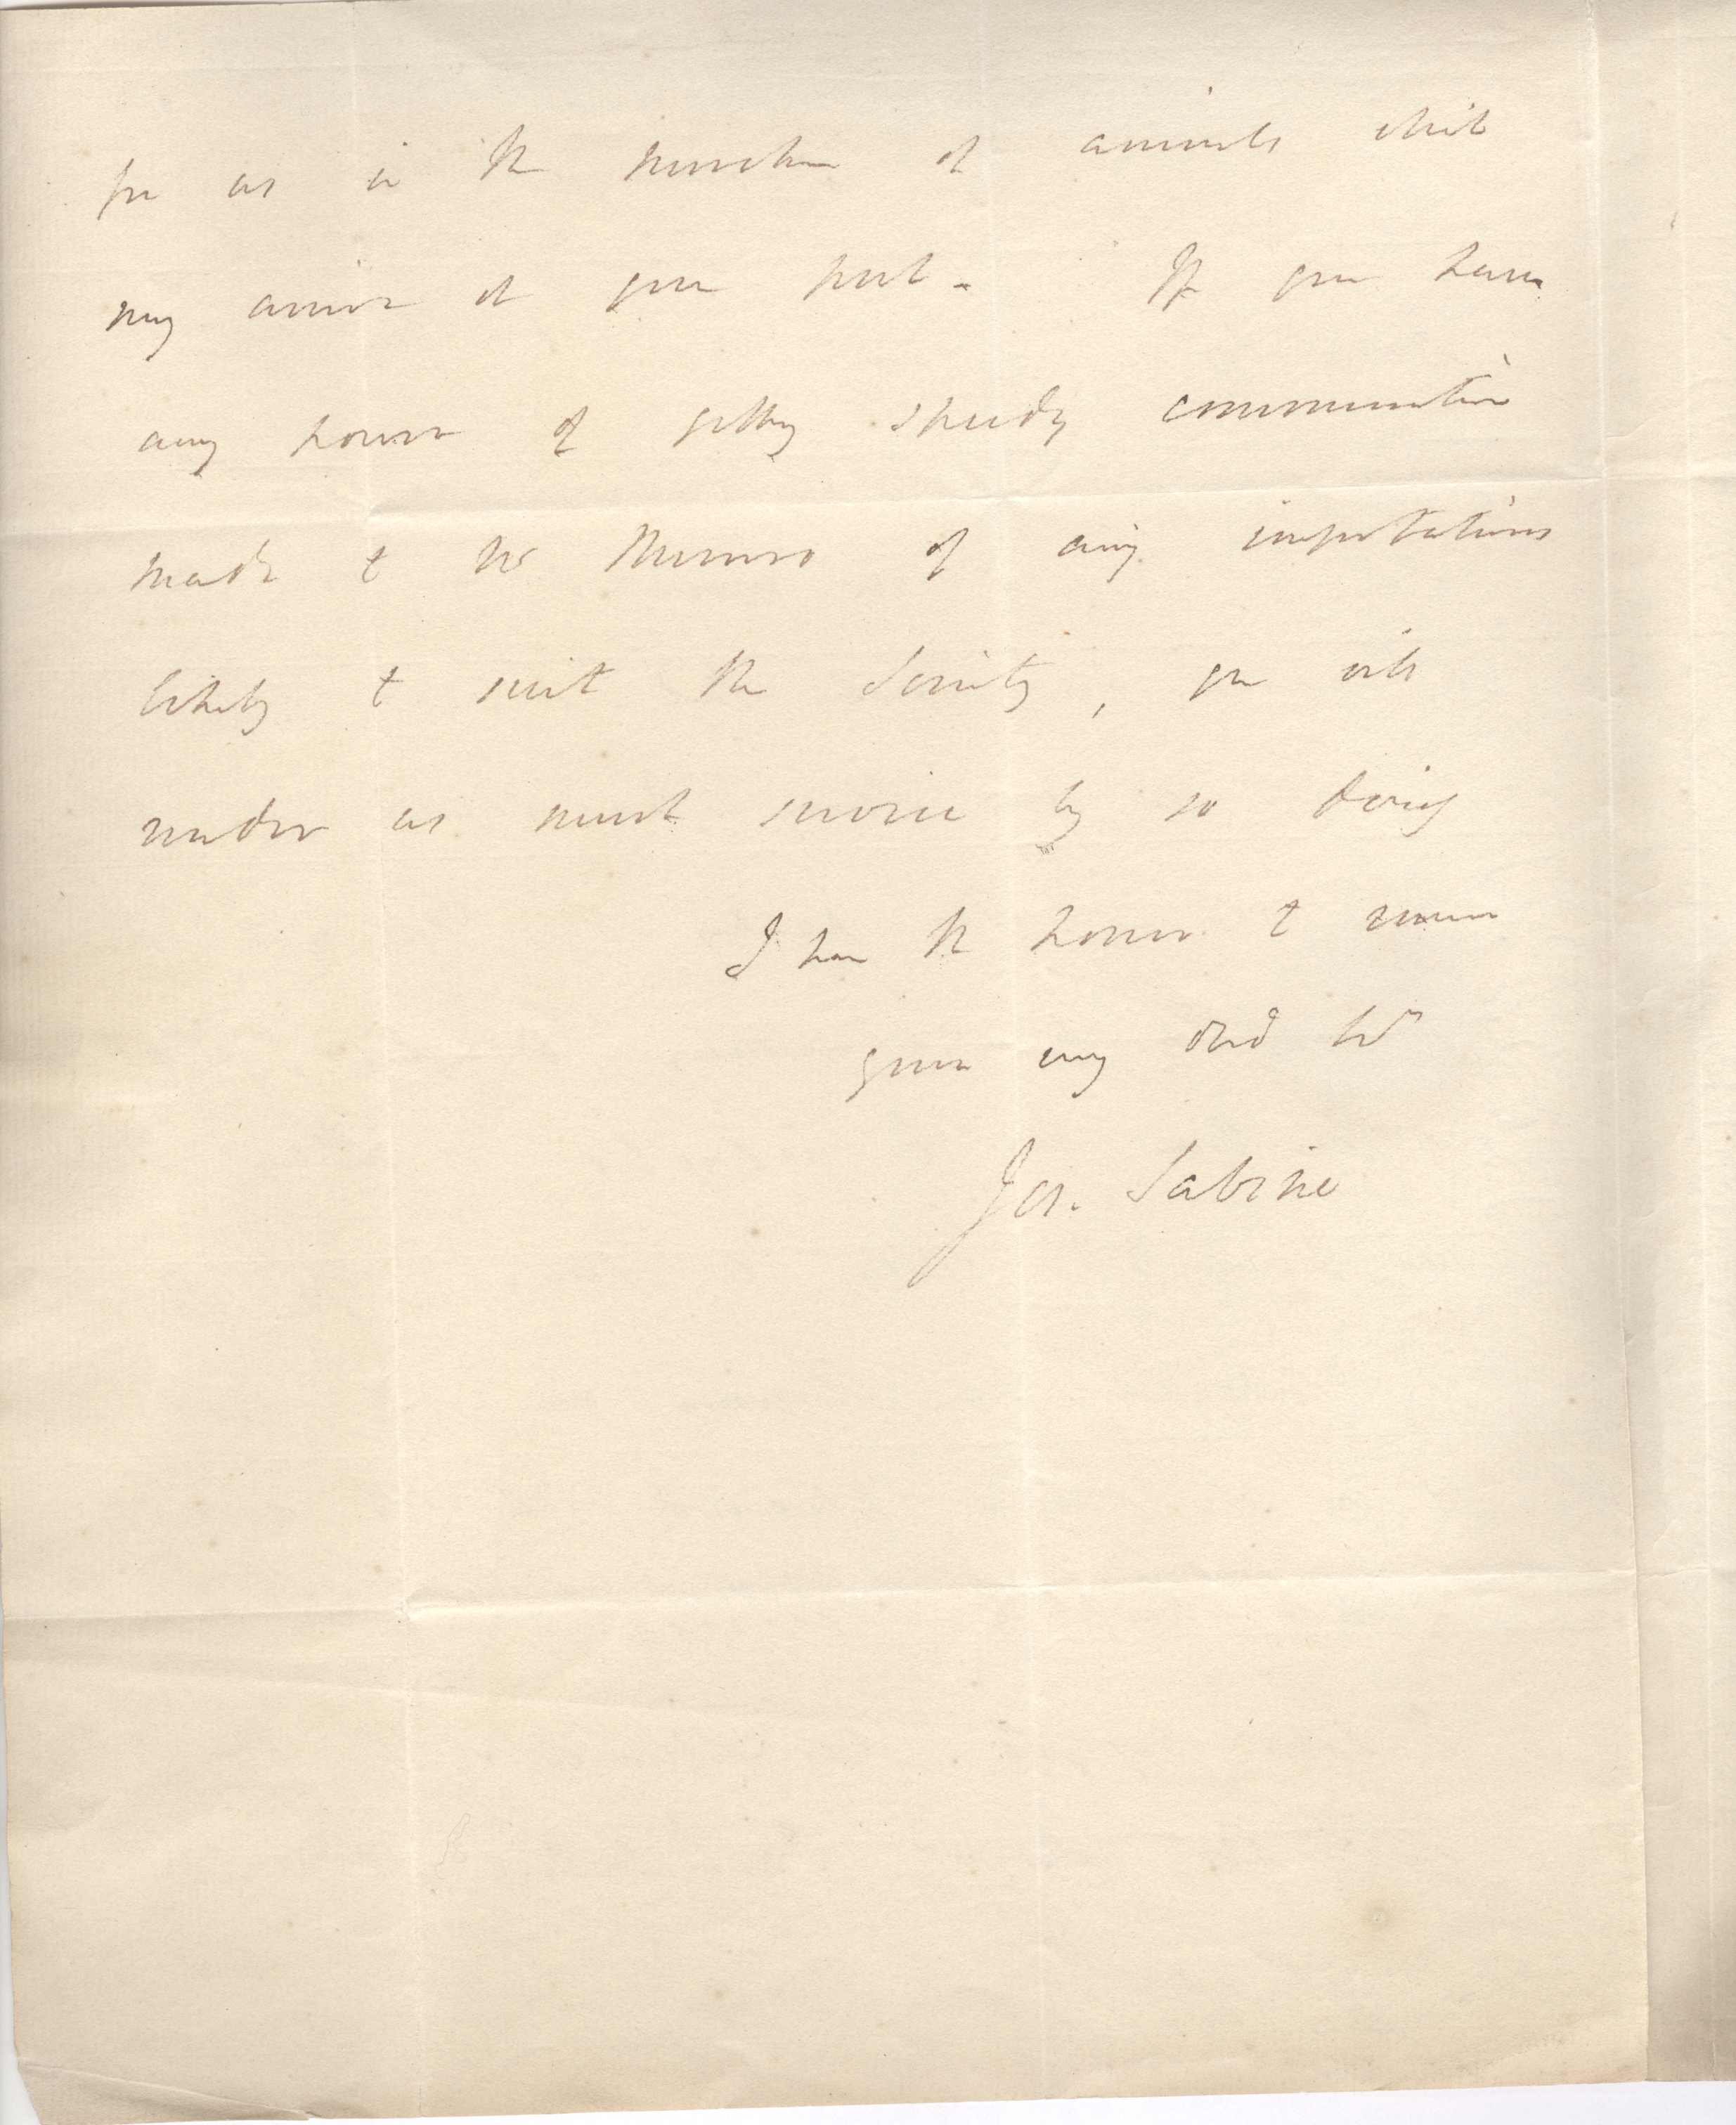 for us in the purchase of animals which
may arrive at your port. If you have
any power of getting speedy communication
made to Mr Munro of any importations
likely to suit the Society, you will
render us much service by so doing
I have the honor to remain
your very Obed Sert
Jos. Sabine